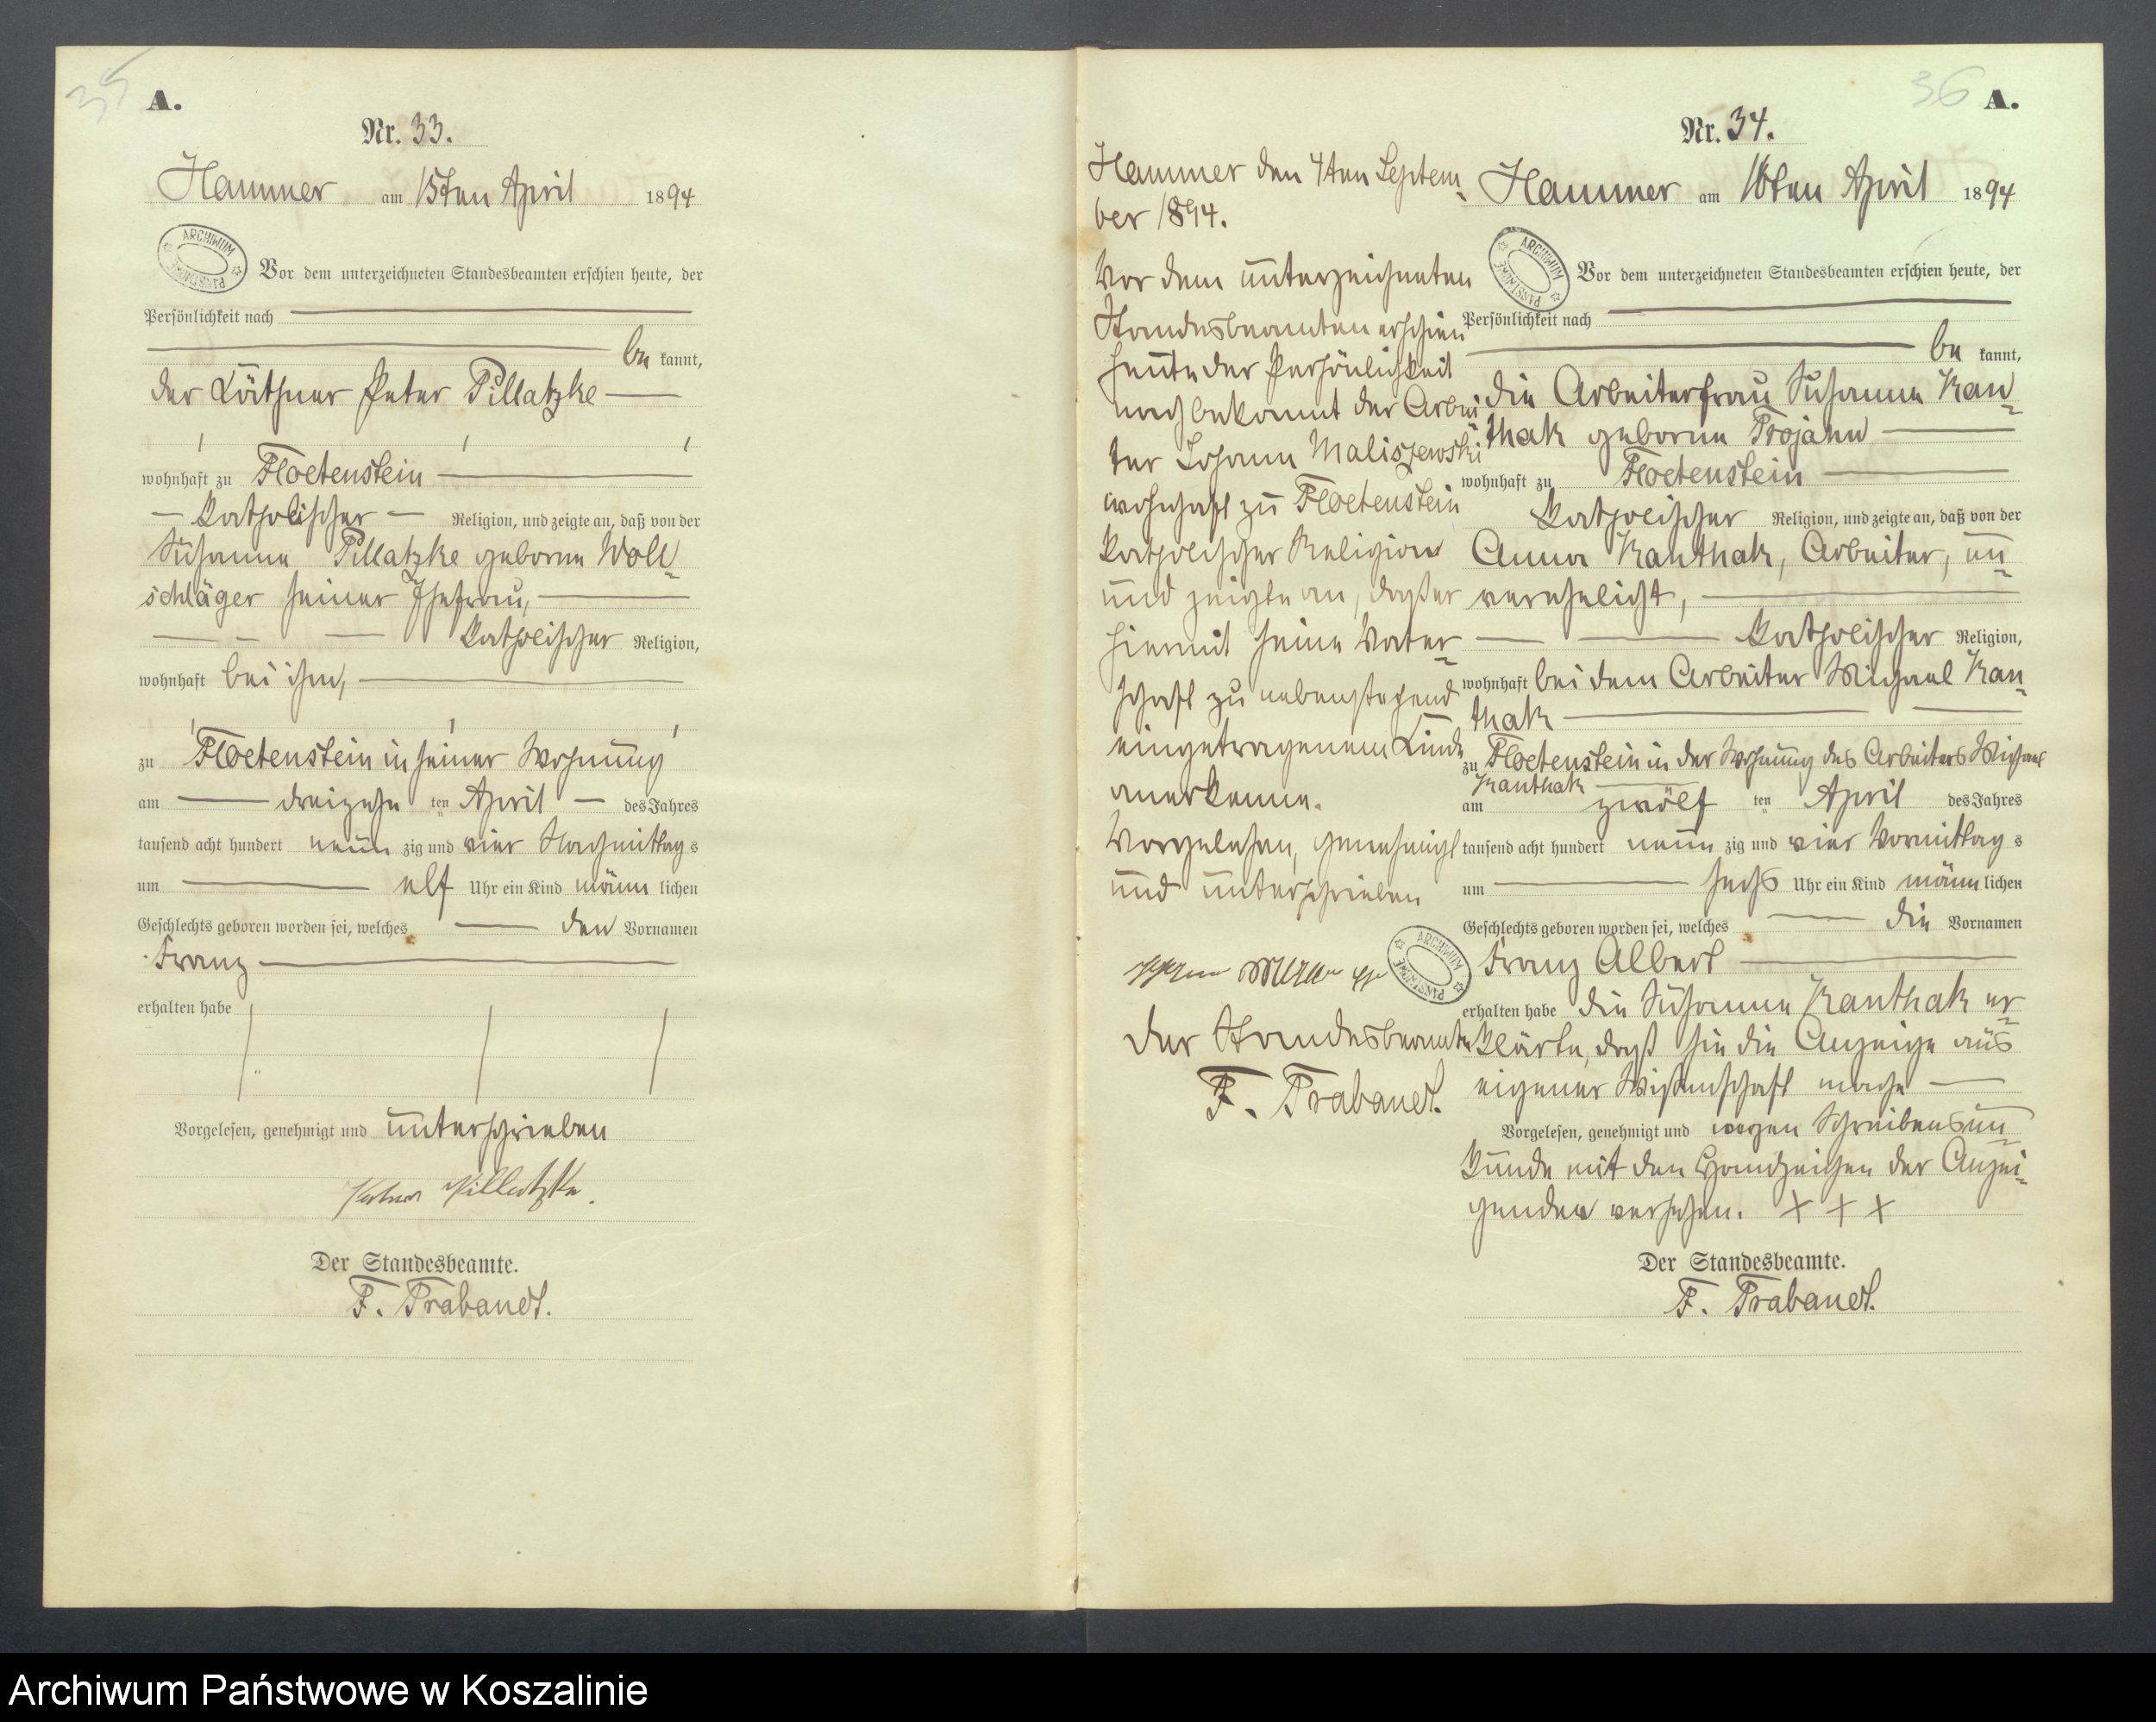 35
A.
Nr. 33.
Hammer am 15ten April 1894
ARCHIWUM PAŃSTWOWE
Vor dem unterzeichneten Standesbeamten erschien heute, der
Persönlichkeit nach
be kannt,
der Käthner Peter Pillatzke
wohnhaft zu Floetenstein
katholischer Religion, und zeigte an, daß von der
Susanna Pillatzke geborne Woll-
schläger seiner Ehefrau,
katholischer Religion,
wohnhaft bei ihm,
zu Floetenstein in seiner Wohnung
am dreizehn ten April des Jahres
tausend acht hundert neun zig und vier Nachmittag s
um elf Uhr ein Kind männ lichen
Geschlechts geboren worden sei, welches den Vornamen
Franz
erhalten habe
Vorgelesen, genehmigt und unterschrieben
Peter Pillatzke.
Der Standesbeamte.
F. Trabandt.
Hammer den 4ten Septem-
ber 1894.
Vor dem unterzeichneten
Standesbeamten erschien
heute der Persönlichkeit
nach bekannt der Arbei-
ter Johann Maliszewski
wohnhaft zu Floetenstein
katholischer Religion
und zeigte an, daß er
hiermit seine Vater-
schaft zu nebenstehend
eingetragenem Kinde
anerkenne.
Vorgelesen, genehmigt
und unterschrieben
ARCHIWUM PAŃSTWOWE
der Standesbeamte
F. Trabandt.
36
A.
Nr. 34.
Hammer am 16ten April 1894
ARCHIWUM PAŃSTWOWE
Vor dem unterzeichneten Standesbeamten erschien heute, der
Persönlichkeit nach
be kannt,
die Arbeiterfrau Susanna Kan-
thak geborne Trojahn
wohnhaft zu Floetenstein
katholischer Religion, und zeigte an, daß von der
Anna Kanthak, Arbeiter, un-
verehelicht,
katholischer Religion,
wohnhaft bei dem Arbeiter Michael Kan-
thak
zu Floetenstein in der Wohnung des Arbeiters Michael
Kanthak
am zwölf ten April des Jahres
tausend acht hundert neun zig und vier Vormittag s
um sechs Uhr ein Kind männ lichen
Geschlechts geboren worden sei, welches die Vornamen
Franz Albert
erhalten habe die Susanna Kanthak er-
klärte, daß sie die Anzeige aus
eigener Wissenschaft mache
Vorgelesen, genehmigt und wegen Schreibensun-
kunde mit den Handzeichen der Anzei-
genden versehen. + + +
Der Standesbeamte.
F. Trabandt.
Archiwum Państwowe w Koszalinie